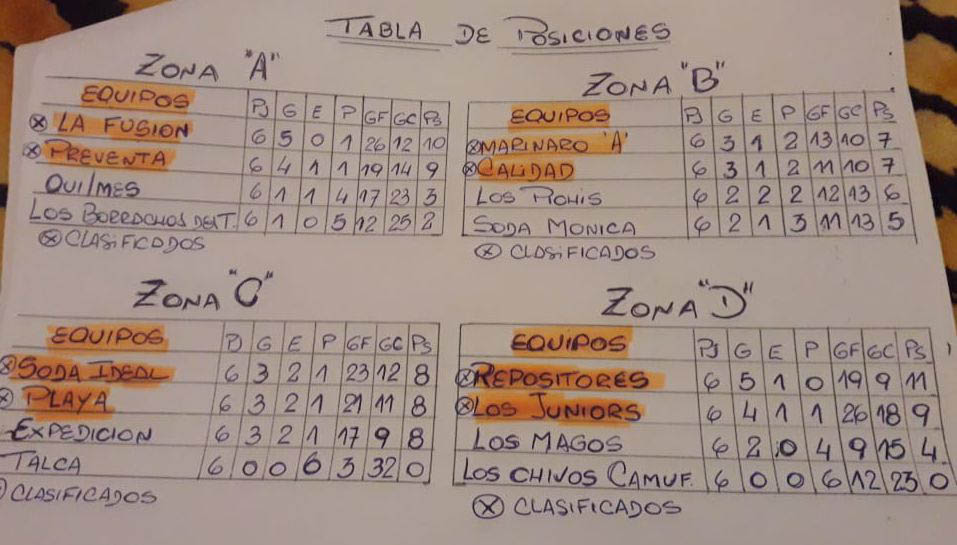 TABLA DE POSICIONES
ZONA "A"
EQUIPOS PJ G E P GF GC PS
ⓧ LA FUSION 6 5 0 1 26 12 10
ⓧ PREVENTA 6 4 1 1 19 14 9
QUILMES 6 1 1 4 17 23 3
LOS BORRACHOS DEL T. 6 1 0 5 12 25 2
ⓧ CLASIFICADOS
ZONA "B"
EQUIPOS PJ G E P GF GC PS
ⓧ MARINARO "A" 6 3 1 2 13 10 7
ⓧ CALIDAD 6 3 1 2 11 10 7
LOS 6 2 2 2 12 13 6
SODA MONICA 6 2 1 3 11 13 5
ⓧ CLASIFICADOS
ZONA "C"
EQUIPOS PJ G E P GF GC PS
ⓧ SODA IDEAL 6 3 2 1 23 12 8
ⓧ PLAYA 6 3 2 1 21 11 8
EXPEDICION 6 3 2 1 17 9 8
TALCA 6 0 0 6 3 32 0
ⓧ CLASIFICADOS
ZONA "D"
EQUIPOS PJ G E P GF GC PS
ⓧ REPOSITORES 6 5 1 0 19 9 11
ⓧ LOS JUNIORS 6 4 1 1 26 18 9
LOS MAGOS 6 2 0 4 9 15 4
LOS CHIVOS CAMUF. 6 0 0 6 12 23 0
ⓧ CLASIFICADOS